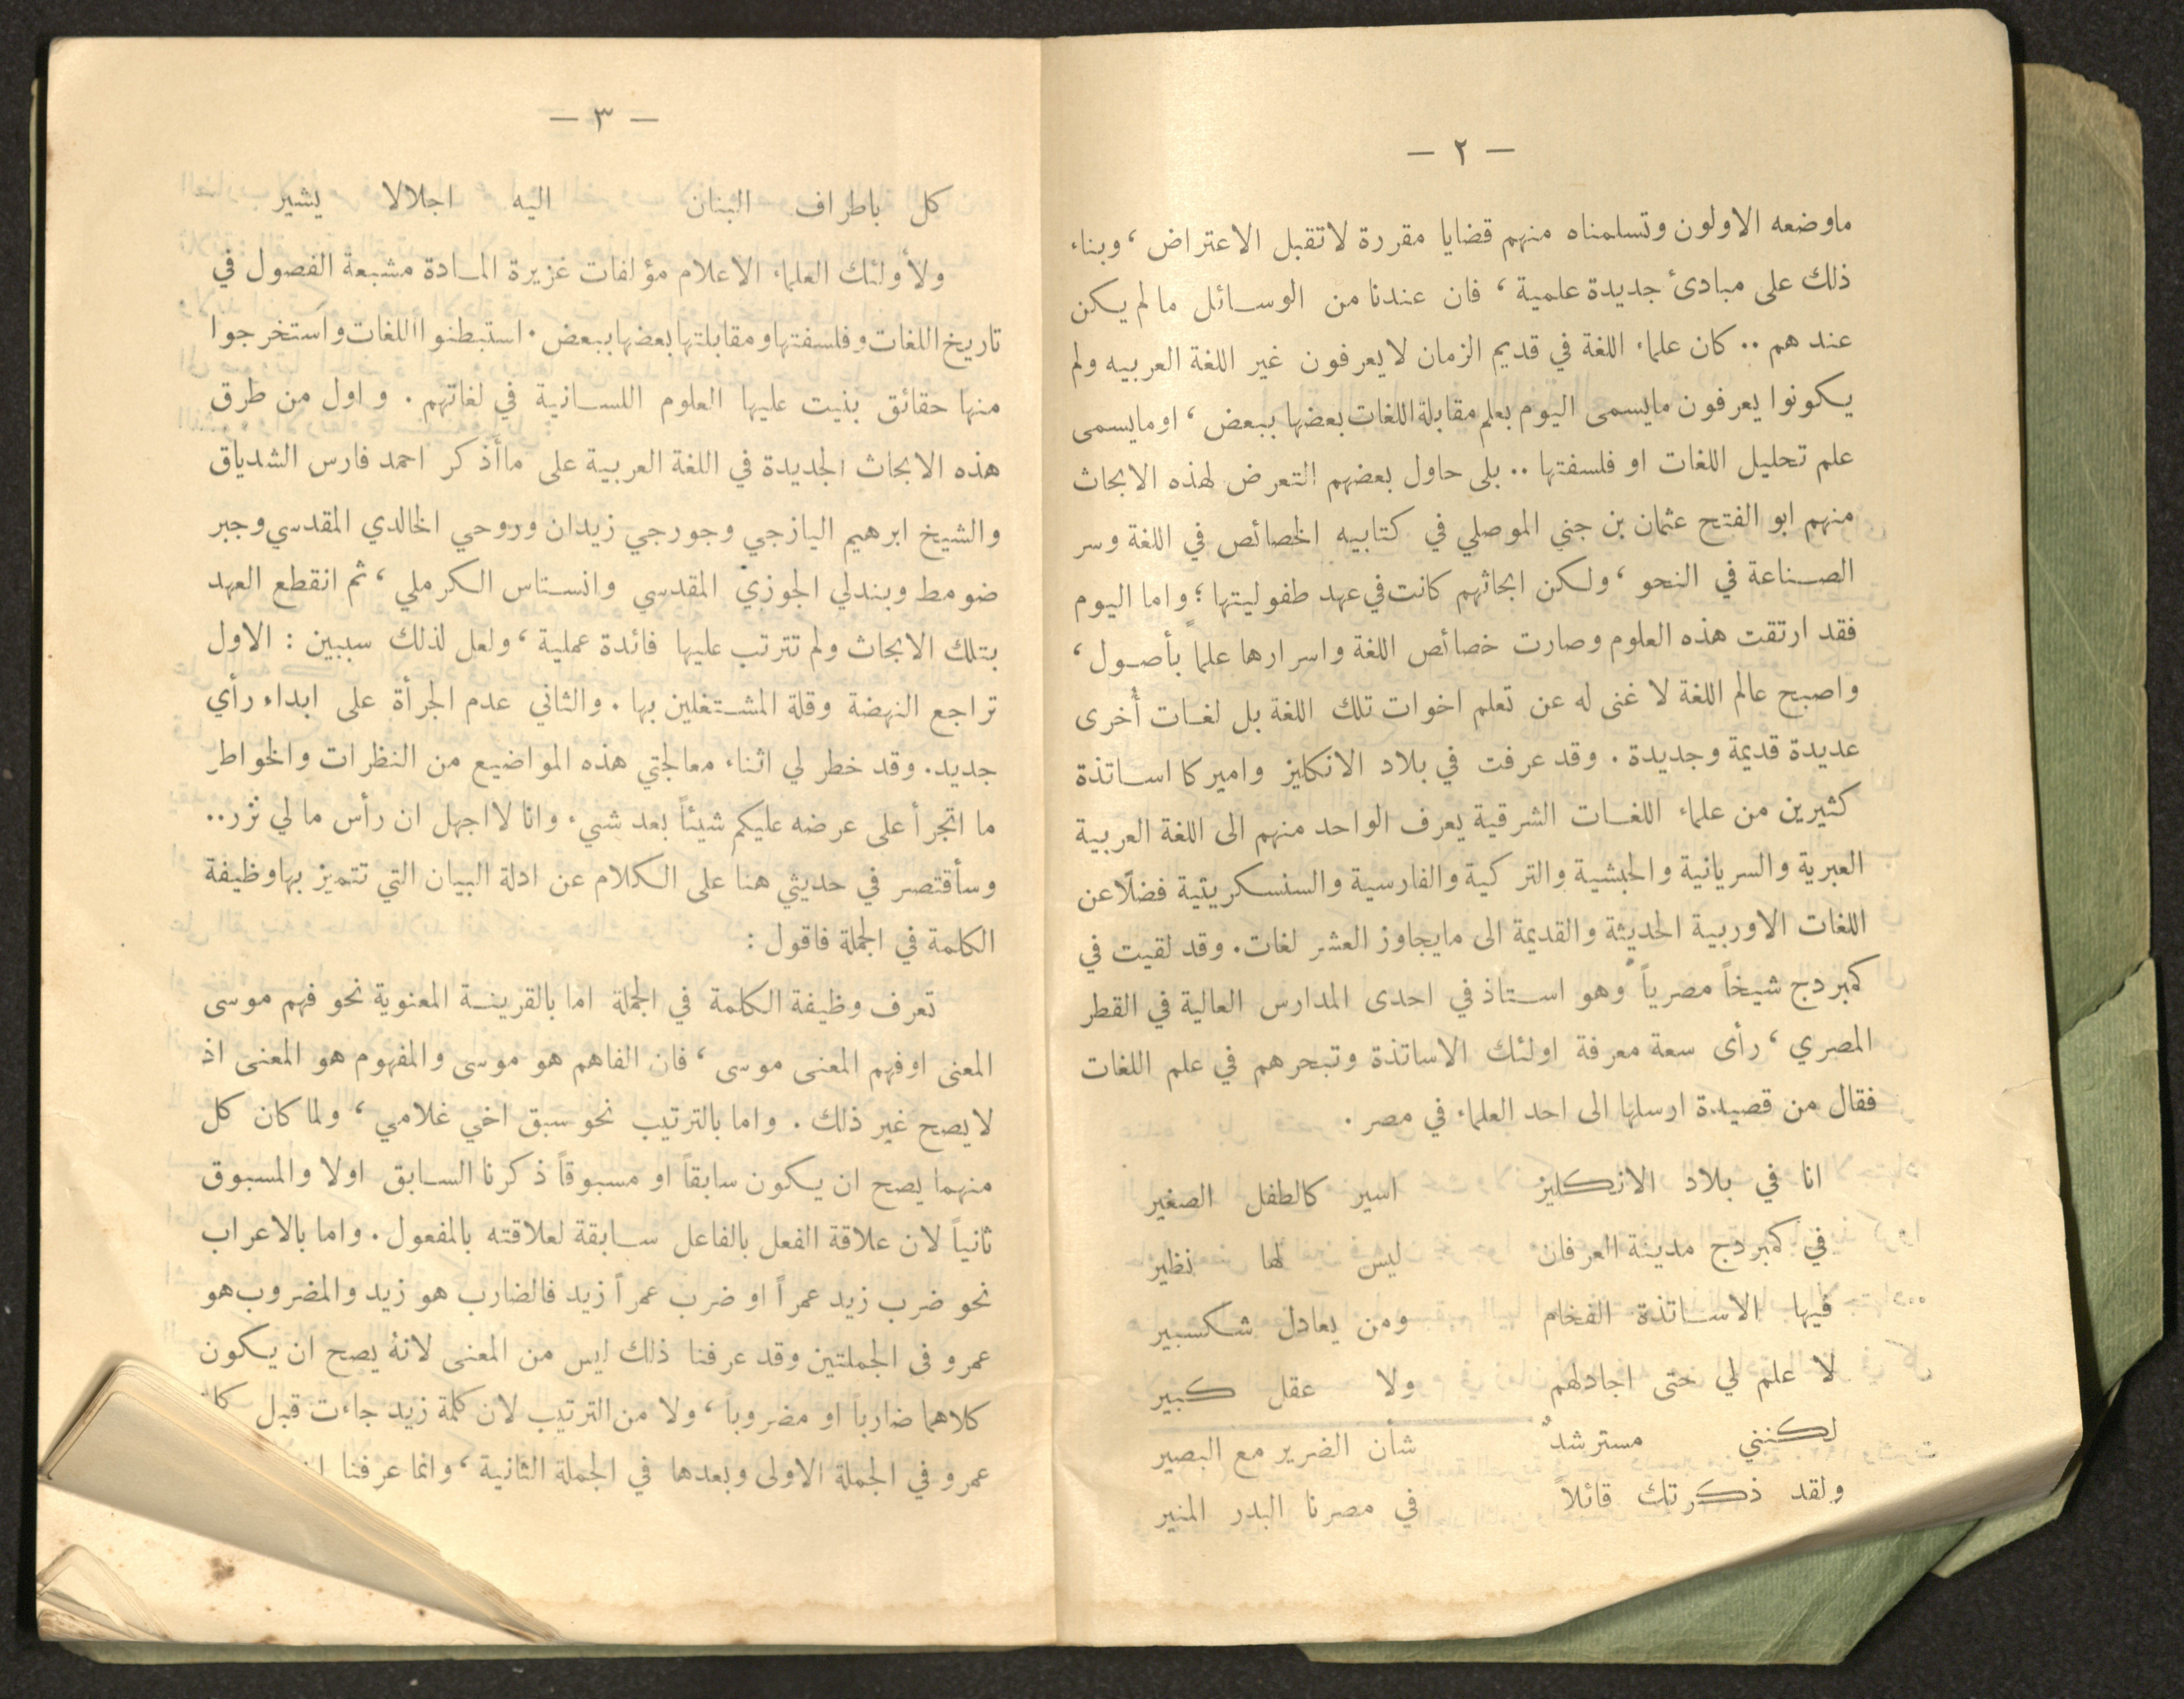 — ٢ —
ماوضعه الاولون وتسلمناه منهم قضايا مقررة لاتقبل الاعتراض ، وبناء
ذلك على مبادئ جديدة علمية ، فان عندنا من الوسائل ما لم يكن
عندهم .. كان علماء اللغة في قديم الزمان لا يعرفون غير اللغة العربيه ولم
يكونوا يعرفون مايسمى اليوم بعلم مقابلة اللغات بعضها ببعض ، او مايسمى
علم تحليل اللغات او فلسفتها .. بلى حاول بعضهم التعرض لهذه الابحاث
منهم ابو الفتح عثمان بن جني الموصلي في كتابيه الخصائص في اللغة وسر
الصناعة في النحو ، ولكن ابحاثهم كانت في عهد طفوليتها ؛ واما اليوم
فقد ارتقت هذه العلوم وصارت خصائص اللغة واسرارها علماً بأصول ،
واصبح عالم اللغة لا غنى له عن تعلم اخوات تلك اللغة بل لغات أُخرى
عديدة قديمة وجديدة . وقد عرفت في بلاد الانكليز واميركا اساتذة
كثيرين من علماء اللغات الشرقية يعرف الواحد منهم الى اللغة العربية
العبرية والسريانية والحبشية والتركية والفارسية والسنسكريتية فضلاً عن
اللغات الاوربية الحديثة والقديمة الى مايجاوز العشر لغات . وقد لقيت في
كمبردج شيخاً مصرياً وهو استاذ في احدى المدارس العالية في القطر
المصري ، رأى سعة معرفة اولئك الاساتذة وتبحرهم في علم اللغات
فقال من قصيدة ارسلها الى احد العلماء في مصر .
انا في بلاد الانكليز اسير كالطفل الصغير
في كمبردج مدينة العرفان ليس لها نظير
فيها الاساتذة الفخام ومن يعادل شكسبير
لا علم لي حتى اجادلهم ولا عقل كبير
لكنني مسترشدٌ شأن الضرير مع البصير
ولقد ذكرتك قائلاً في مصرنا البدر المنير
— ٣ —
كل باطراف البنان اليه اجلالا يشير
ولأولئك العلماء الاعلام مؤلفات غزيرة المادة مشبعة الفصول في
تاريخ اللغات وفلسفتها ومقابلتها بعضها ببعض . استبطنوا اللغات واستخرجوا
منها حقائق بنيت عليها العلوم اللسانية في لغاتهم . واول من طرق
هذه الابحاث الجديدة في اللغة العربية على ماأذكر احمد فارس الشدياق
والشيخ ابرهيم اليازجي وجورجي زيدان وروحي الخالدي المقدسي وجبر
ضومط وبندلي الجوزي المقدسي وانستاس الكرملي ، ثم انقطع العهد
بتلك الابحاث ولم تترتب عليها فائدة عملية ، ولعل لذلك سببين : الاول
تراجع النهضة وقلة المشتغلين بها . والثاني عدم الجرأة على ابداء رأي
جديد . وقد خطر لي اثناء معالجتي هذه المواضيع من النظرات والخواطر
ما اتجرأ على عرضه عليكم شيئاً بعد شيء وانا لااجهل ان رأس مالي نزر..
وسأقتصر في حديثي هنا على الكلام عن ادلة البيان التي تتميز بها وظيفة
الكلمة في الجملة فاقول :
تعرف وظيفة الكلمة في الجملة اما بالقرينة المعنوية نحو فهم موسى
المعنى اوفهم المعنى موسى ، فان الفاهم هو موسى والمفهوم هو المعنى اذ
لا يصح غير ذلك . واما بالترتيب نحو سبق اخي غلامي ، ولما كان كل
منهما يصح ان يكون سابقاً او مسبوقاً ذكرنا السابق اولا والمسبوق
ثانياً لان علاقة الفعل بالفاعل سابقة لعلاقته بالمفعول . واما بالاعراب
نحو ضرب زيد عمراً او ضرب عمراً زيد فالضارب هو زيد والمضروب هو
عمرو في الجملتين وقد عرفنا ذلك ليس من المعنى لانهُ يصح ان يكون
كلاهما ضارباً او مضروباً ، ولا من الترتيب لان كلمة زيد جاءت قبل
عمرو في الجملة الاولى وبعدها في الجملة الثانية ، وانما عرفنا